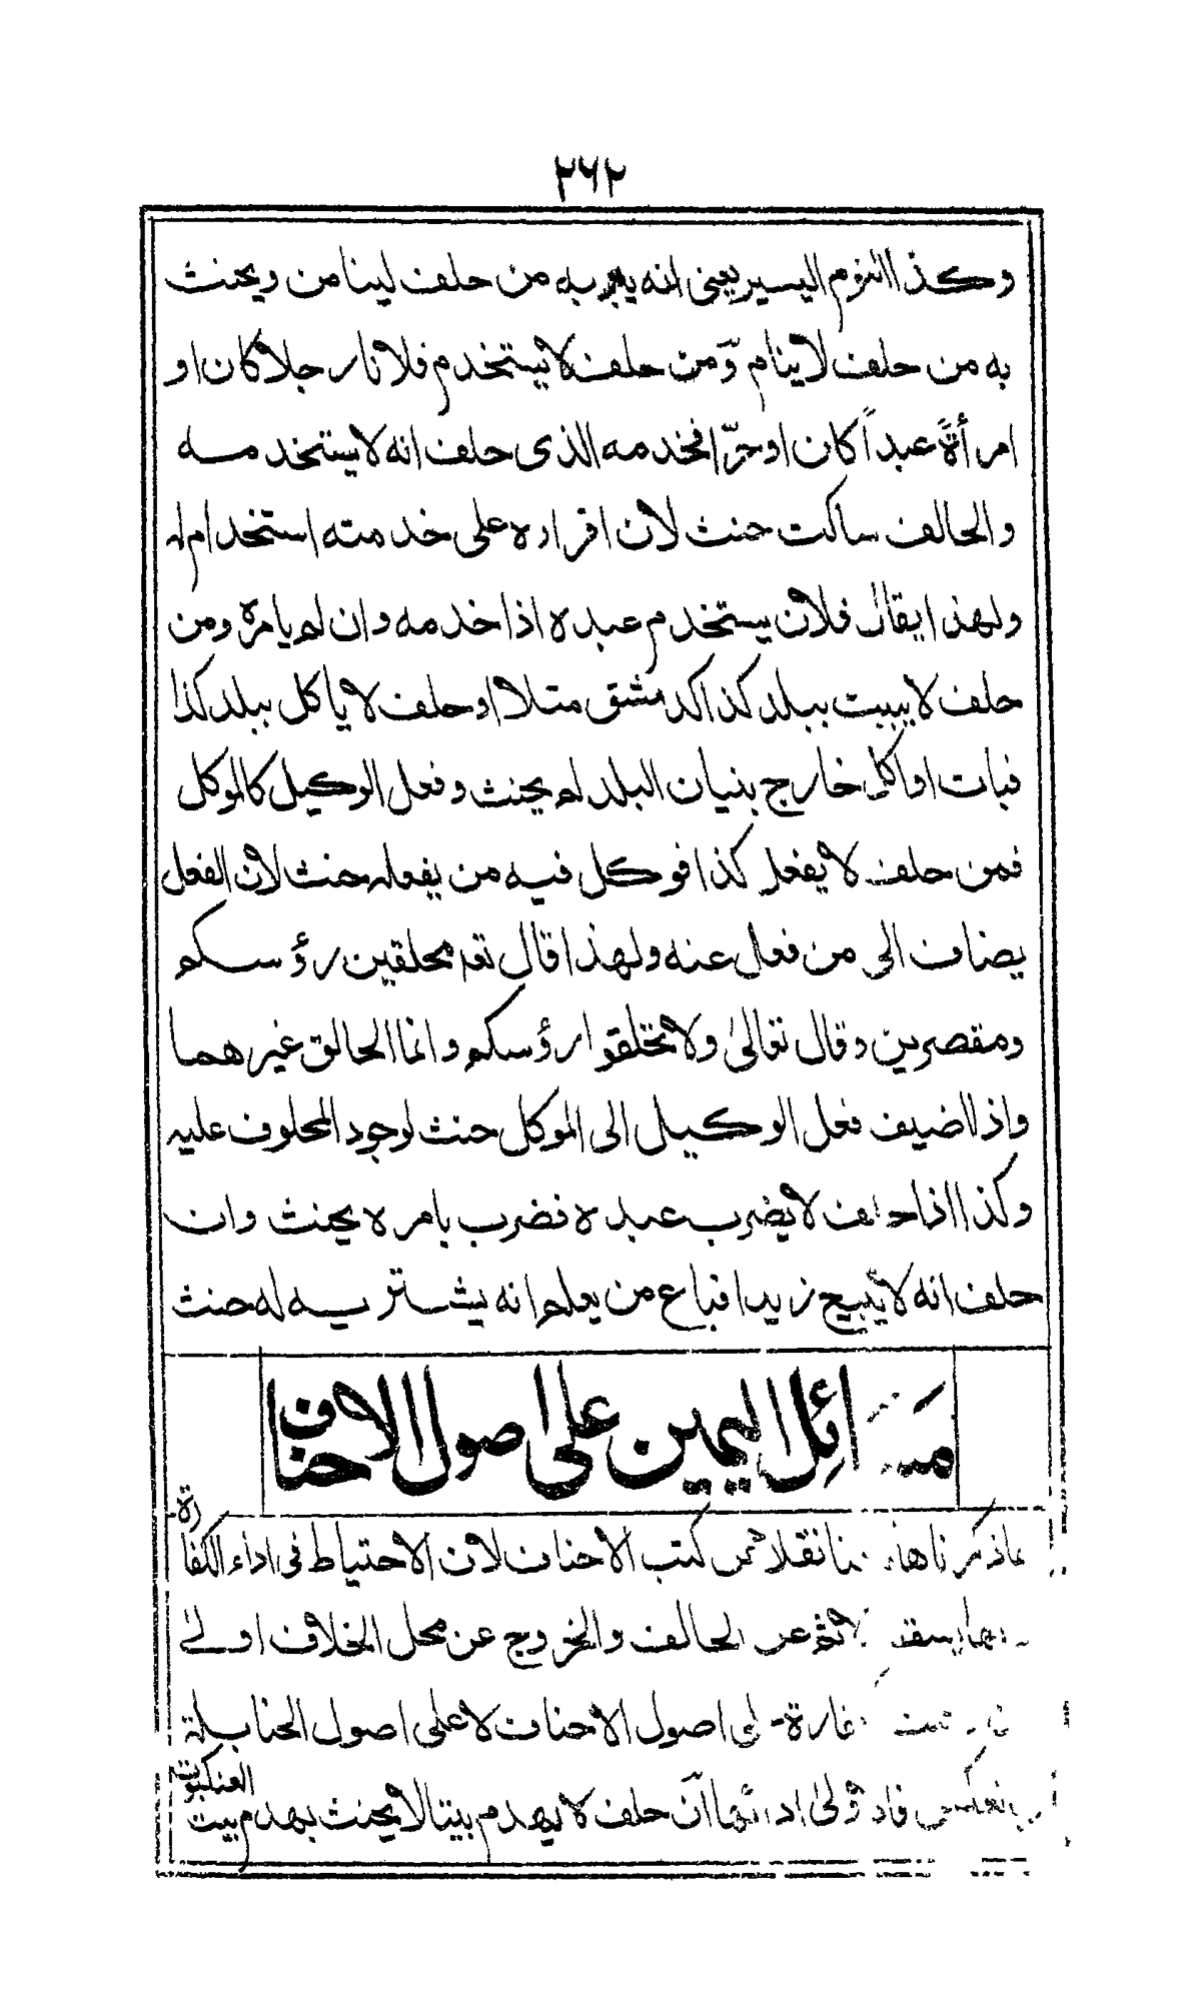 ٢٦٢
وكذا النوم اليسير يعنى انه يبر به من حلف لينا من ويحنث
به من حلف لا ينام وّمن حلف لا يستخدم فلانا رجلا كان او
امرأةً عبداً كان او حرّا فخدمه الذى حلف انه لا يستخدمه
والحالف ساكت حنث لان اقراره على خدمته استخدام له
ولهذا يقال فلان يستخدم عبده اذا خدمه وان لم يامره ومن
حلف لا يبيت ببلد كذا كدمشق مثلا او حلف لا ياكل ببلد كذا
فبات او اكل خارج بنيان البلد لم يحنث وفعل الوكيل كالموكل
فمن حلف لا يفعل كذا فوكل فيه من يفعله حنث لان الفعل
يضاف الى من فعل عنه ولهذا قال تعم محلقين رؤسكم
ومقصرين وقال تعالىٰ ولا تحلقوا رؤسكم وانما الحالق غيرهما
واذا اضيف فعل الوكيل الى الموكل حنث لوجود المحلوف عليه
وكذا اذا حلف لا يضرب عبده فضرب بامره يحنث وان
حلف انه لا يبيع زيدا فباع من يعلم انه يشتريه له حنث
مسائل اليمين على اصول الاحناف
ماذكرناها هنا نقلا من كتب الاحناف لان الاحتياط فى اداء الكفارة
الاثم عن الحالف والخروج عن محل الخلاف اولىٰ
على اصول الاحناف لا على اصول الحنابلة
فالاولىٰ ادائها آن حلف لا يهدم بيتا لا يحنث بهدم بيت العنكبوت